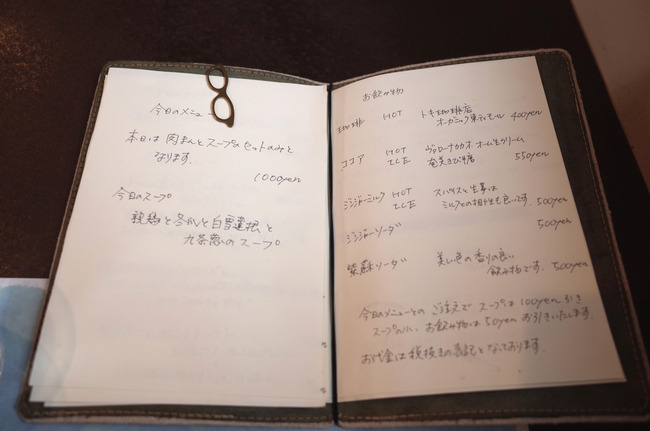 今日のメニュー
本日は 肉まんと スープのセットのみと
なります。
1000yen
今日のスープ
親鶏と冬瓜と白雪蓮根と
九条葱のスープ
お飲み物
珈琲 HOT トキ珈琲店
オーガニック東ティモール 400yen
ココア HOT ヴァローナカカオ
ICE 550yen
ジンジャーミルク HOT スパイスと生姜は
ICE ミルクとの相性も良いです。 500yen
ジンジャーソーダ 500yen
紫蘇ソーダ 美しい色の香りの良い
飲み物です。 500yen
今日のメニューとの ご注文で スープは 100yen 引き
お飲み物は 50yen お引きいたします。
お代金は税抜き表記となっております。